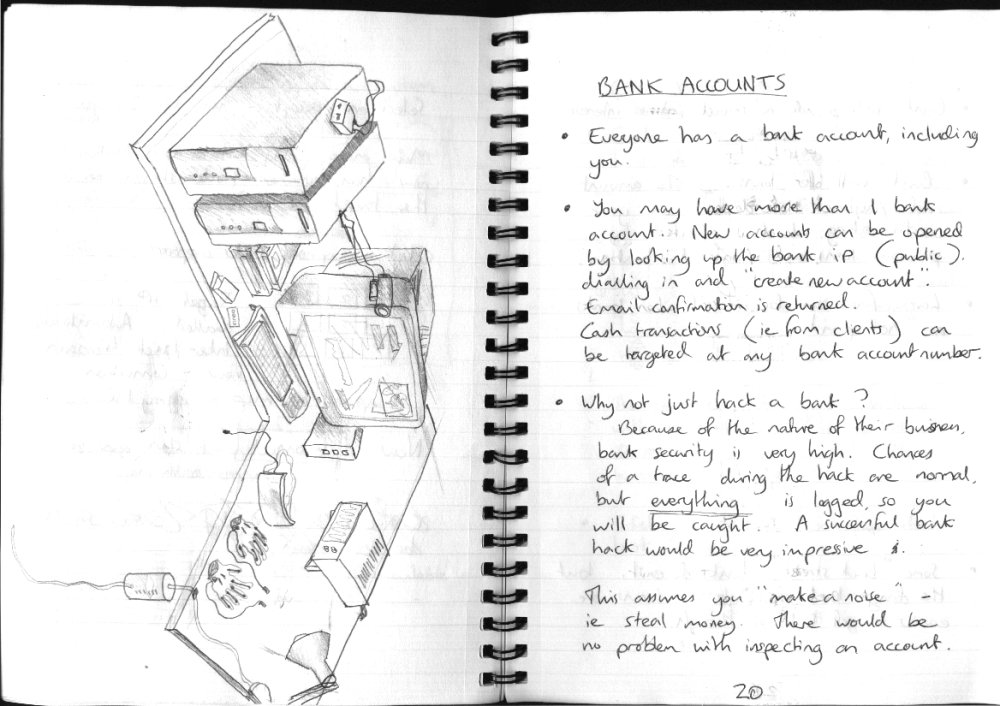 BANK ACCOUNTS
• Everyone has a bank account, including
you.
• You may have more than 1 bank
account. New accounts can be opened
by looking up the bank iP (public).
dialling in and "create new account".
Email confirmation is returned.
Cash transactions (ie from clients) can
be targeted at any bank account number.
• Why not just hack a bank?
Because of the nature of their business,
bank security is very high. Chances
of a trace during the hack are normal,
but everything is logged, so you
will be caught. A successful bank
hack would be very impressive
This assumes you "make a noise" -
ie steal money. There would be
no problem with inspecting an account.
20